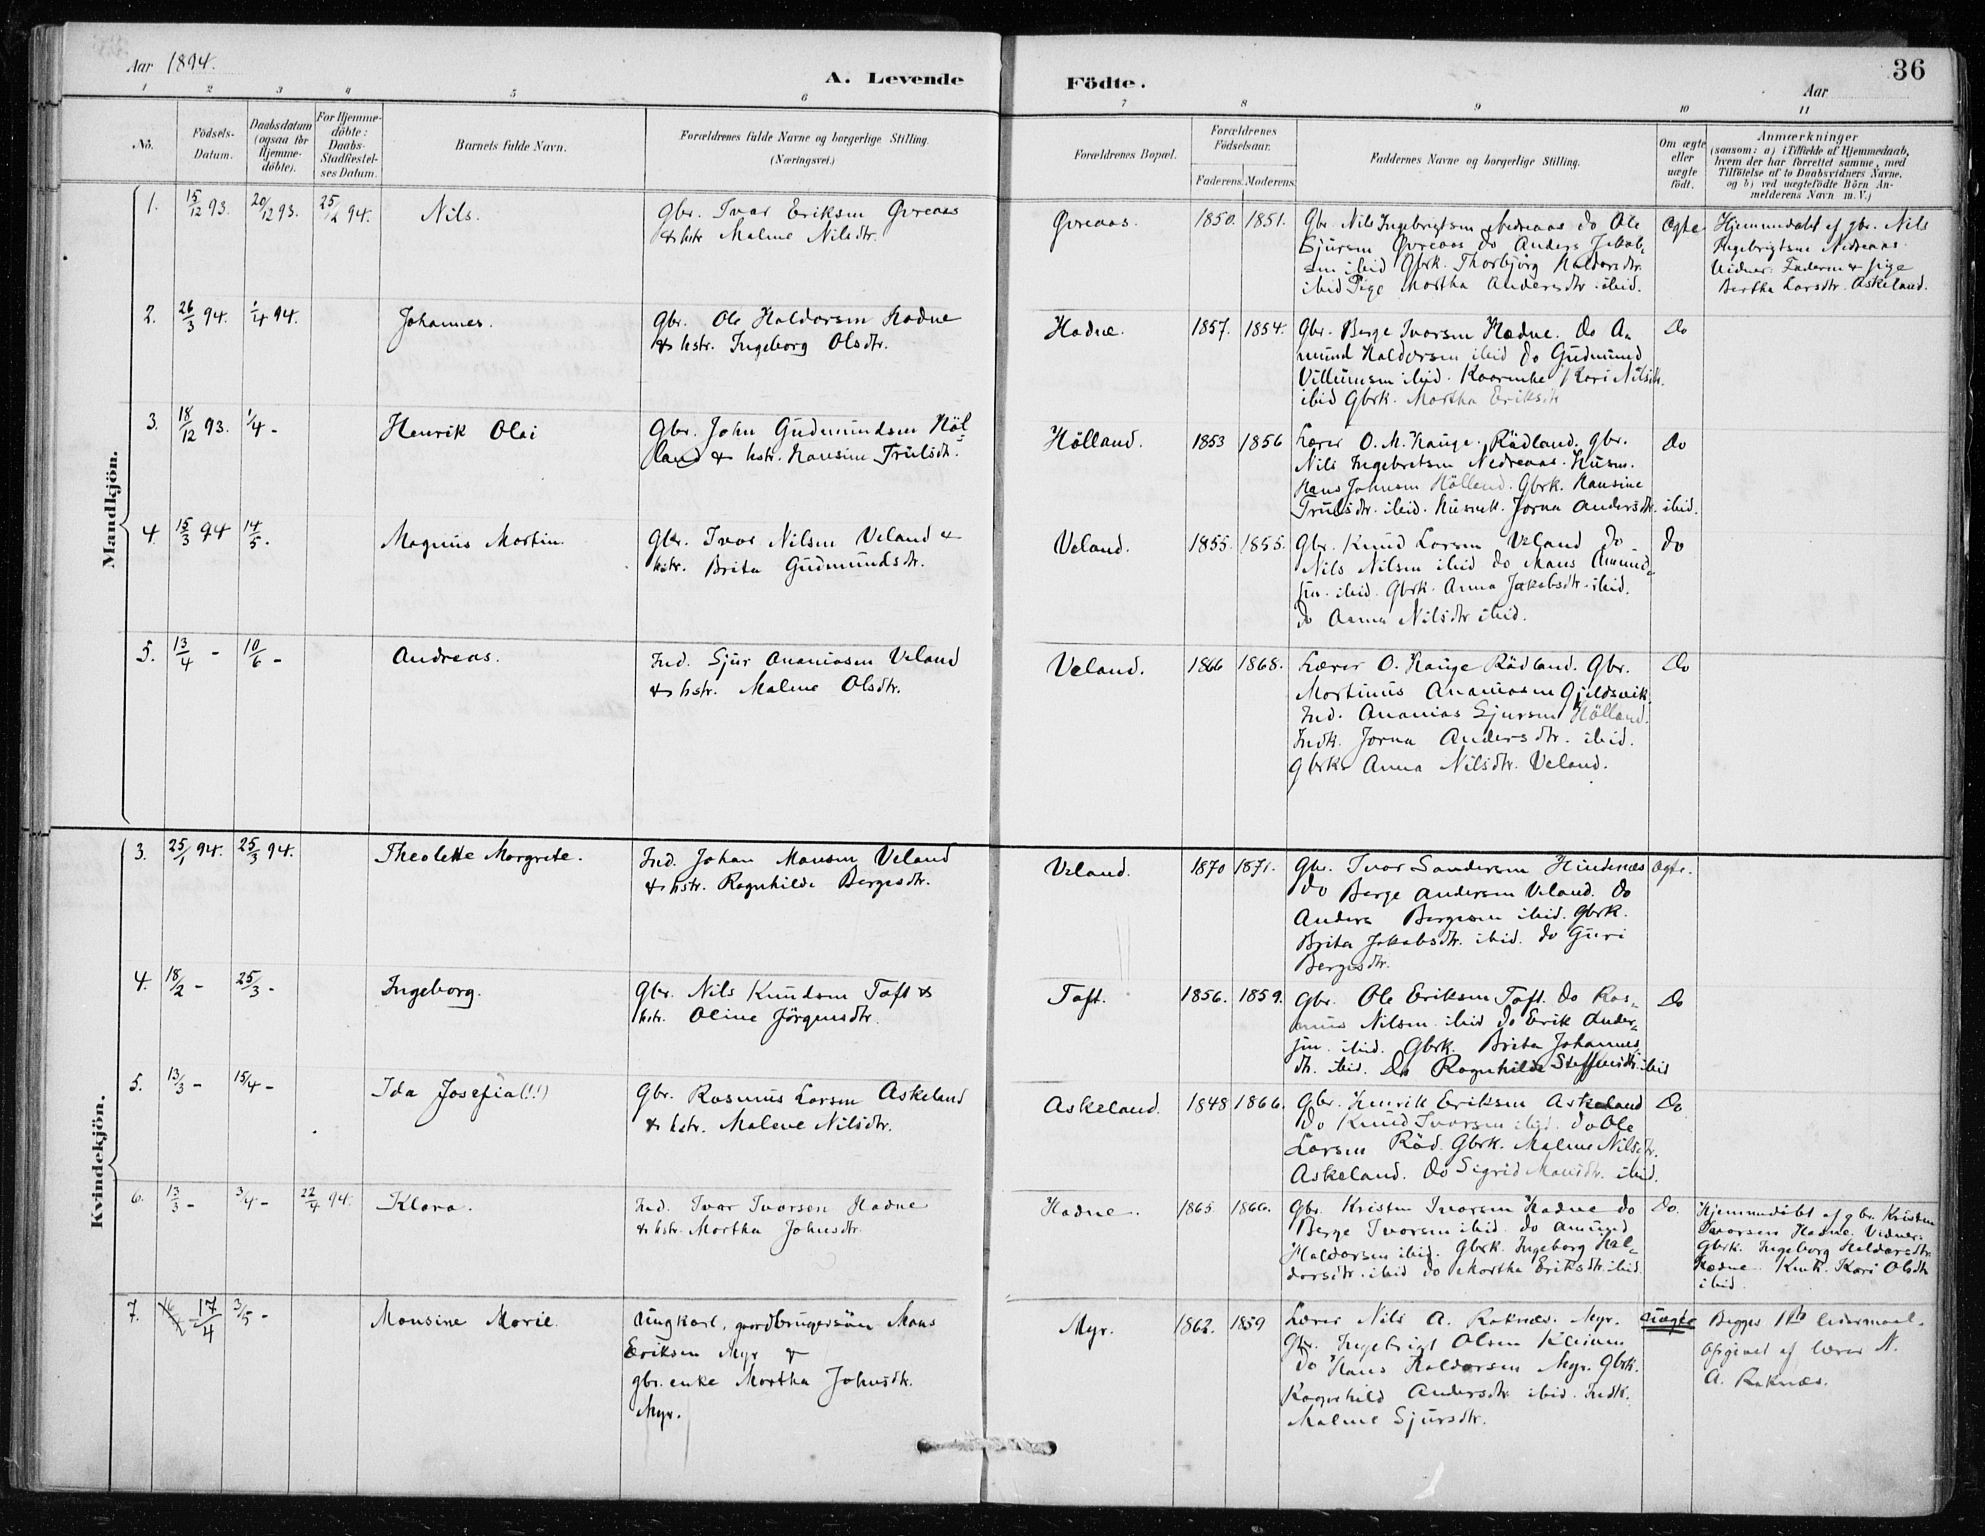 Aar 1894.
A. Levende Födte.
Aar
36
1 2 3 4 5 6 7 8 9 10 11
No.
Födsels-
Datum.
Daabsdatum
(ogsaa for
Hjemme-
döbte).
For Hjemme-
döbte:
Daabs-
Stadfæstel-
ses Datum.
Barnets fulde Navn.
Forældrenes fulde Navne og borgerlige Stilling.
(Næringsvei.)
Forældrenes Bopæl.
Forældrenes
Födselsaar.
Faderens. Moderens.
Faddernes Navne og borgerlige Stilling.
Om ægte
eller
uægte
født.
Anmærkninger
(saasom: a) i Tilfælde af Hjemmedaab,
hvem der har forrettet samme, med
Tilföielse af to Daabsvidners Navne.
og b) ved uægtefödte Börn An-
melderens Navn m. V.)
Mandkjön.
1. 15/12 93. 20/12 93. 25/2 94. Nils.
Gbr. Ivar Eriksen Øvreaas
& hstr Malene Nilsdtr.
Øvreaas. 1850. 1851.
Gbr. Nils Ingebrigtsen Nedreaas do Ole
Sjursen Øvreaas do Anders Jakob-
sen ibid Gbrk. Thorbjörg Haldorsdtr.
ibid Pige Martha Andersdtr. ibid.
Ægte
Hjemmedøbt af gbr. Nils
Ingebrigtsen Nedreaas.
Vidner: Faderen & pige
Bertha Larsdtr. Askeland.
2. 26/3 94. 1/4 94. Johannes.
Gbr. Ole Haldorsen Hadne
& hstr. Ingeborg Olsdtr.
Hadne. 1857. 1854.
Gbr. Berge Ivarsen Hadne. do A-
mund Haldorsen ibid do Gudmund
Villumsen ibid. Kaarenke Kari Nilsdtr.
ibid Gbrk. Martha Eriksdtr
Do
3. 18/12 93. 1/4 - Henrik Olai
Gbr. John Gudmundsen Höl-
land & hstr. Hansine Trulsdtr.
Hölland. 1853 1856
Lærer O. M. Hauge. Rödland. Gbr.
Nils Ingebretsen Nedreaas. Husm.
Hans Johnsen Hölland. Gbrk. Hansine
Trulsdtr. ibid. Husmk. Jorna Andersdtr. ibid.
Do
4. 15/3 94 14/5 - Magnus Martin.
Gbr. Ivar Nilsen Veland &
hstr. Brita Gudmundsdtr.
Veland. 1855. 1855.
Gbr. Knud Larsen Veland do
Nils Nilsen ibid do Mans Amund-
sen. ibid. Gbrk. Anna Jakobsdtr. ibid.
do Anna Nilsdtr ibid.
Do
5. 13/4 - 10/6 - Andreas.
Ind. Sjur Ananiasen Veland
& hstr. Malene Olsdtr.
Veland. 1866 1868.
Lærer O. Hauge Rödland. Gbr.
Martinus Ananiasen Gjeldsvik.
Ind. Ananias Sjursen Hölland.
Indk. Jorna Andersdtr. ibid.
Gbrk. Anna Nilsdtr. Veland.
Do
Kvindekjön.
3. 25/1 94. 25/3 94. Theolette Margrete.
Ind. Johan Mansen Veland
& hstr. Ragnhilde Bergesdtr.
Veland. 1870 1871.
Gbr. Ivar Sandersen Hindenæs
do Berge Andersen Veland. do
Anders Bergesen ibid. Gbrk.
Brita Jakobsdtr. ibid. do Guri
Bergesdtr.
Ægte.
4. 18/2 - 25/3 - Ingeborg.
Gbr. Nils Knudsen Toft &
hstr. Oline Jörgensdtr.
Toft. 1856. 1859.
Gbr. Ole Eriksen Toft. do Ras-
mus Nilsen. ibid do Erik Ander-
sen. ibid. Gbrk. Brita Johannes-
dtr. ibid. Do Ragnhilde Steffensdtr. ibid
Do
5. 13/3 - 15/4 - Ida Josefia (!!)
Gbr. Rasmus Larsen Askeland
& hstr. Malene Nilsdtr.
Askeland. 1848 1866.
Gbr. Henrik Eriksen Askeland
do Knud Ivarsen ibid. do Ole
Larsen Röd. Gbrk. Malene Nilsdtr.
Askeland. do Sigrid Mansdtr. ibid.
Do
6. 13/3 - 3/4 - 22/4 94. Klara.
Ind. Ivar Ivarsen Hadne
& hstr. Martha Johnsdtr.
Hadne. 1865. 1866.
Gbr. Kristen Ivarsen Hadne do
Berge Ivarsen ibid. do Amund
Haldorsen ibid. Gbrk. Ingeborg Hal-
dorsdtr. ibid do Martha Eriksdtr. ibid
Do.
Hjemmedöbt af gbr. Kristen
Ivarsen Hadne. Vidner:
Gbrk. Ingeborg Haldorsdtr.
Hadne. Kark. Kari Olsdtr.
ibid.
7. 17/4 3/5 - Mansine Marie.
Ungkarl, gaardbrugersön Mans
Eriksen Myr &
gbr. enke Martha Johnsdtr.
Myr.
Myr. 1862. 1859
Lærer Nils A. Raknæs. Myr.
Gbr. Ingebrigt Olsen
do Hans Haldorsen Myr. Gbrk.
Ragnhild Andersdtr ibid. Indk.
Malene Sjursdtr.
Uægte
Begges 1ste leiermaal.
Opgivet af lærer N.
A. Raknæs.